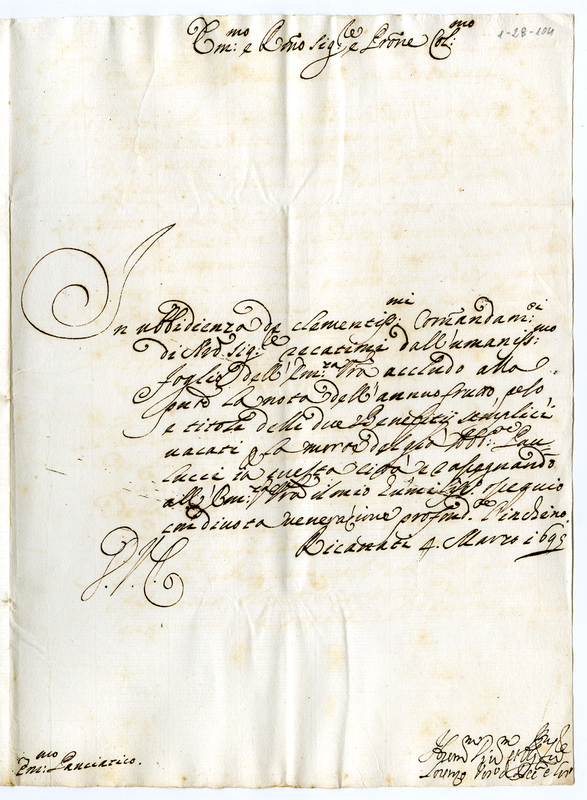 1-28-104
Em:mo e R.mo Sig.re e Prone Col:mo
In ubbidienza de clementiss:mi Comandam:ti
di N'ro Sig.re recatimi dall'umaniss:mo
foglio dell'Em:za V'ra accludo alla
nota dell'annuo frutto, peso,
e titolo delli due Benefitij semplici
vacati la morte del Abb:e Pau-
lucci in questa città rassegnando
all'Em:za V'ra il mio umiliss.o ossequio
con divota venerazione profond.te l'inchino.
Ricanati 4. Marzo 1695
D.V.E.
Em:mo Panciatico.
Lorenzo